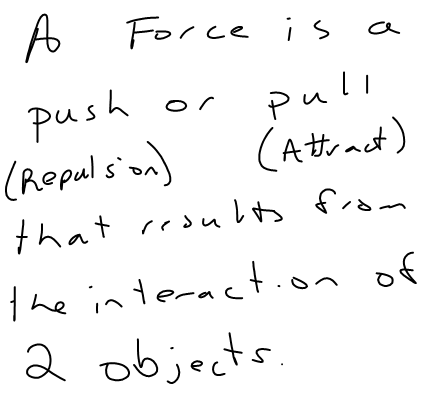 A Force is a
push or pull
(Repulsion) (Attract)
that results from
the interaction of
2 objects.